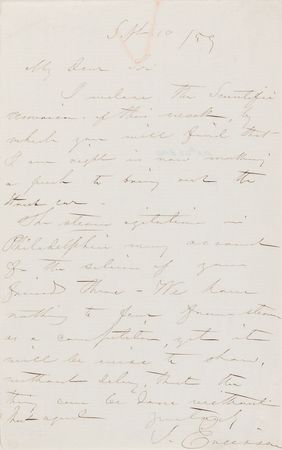 Sept 10 /59
My Dear Sir
I enclose the Scientific
of this week, by
which you will find that
I am right in now making
a push to bring out the
The steam agitation in
Philadelphia may account
for the silence of your
friend there - We have
nothing to fear from steam
as a competitor, yet it
will be wise to show,
without delay, that the
thing can be done without
Yours truly
J. Ericsson